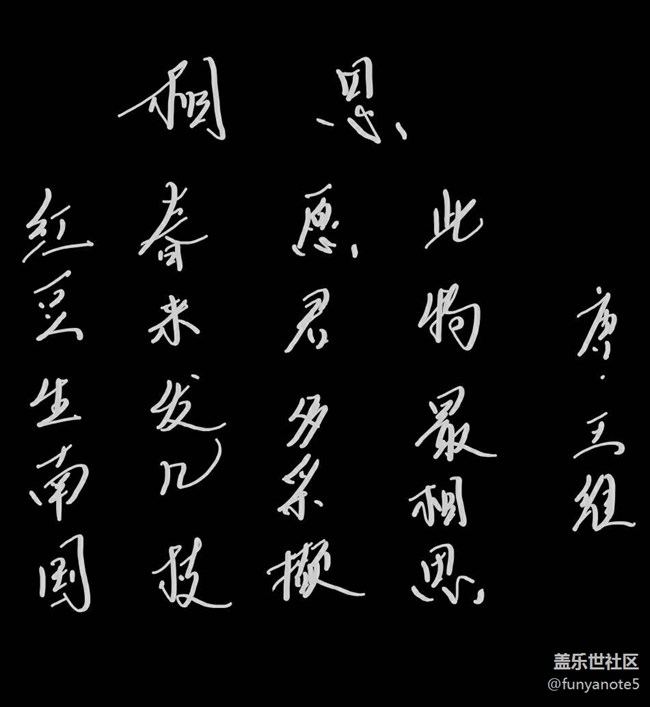 相思
红豆生南国
春来发几枝
愿君多采撷
此物最相思
唐·王维
盖乐世社区
@funyanote5